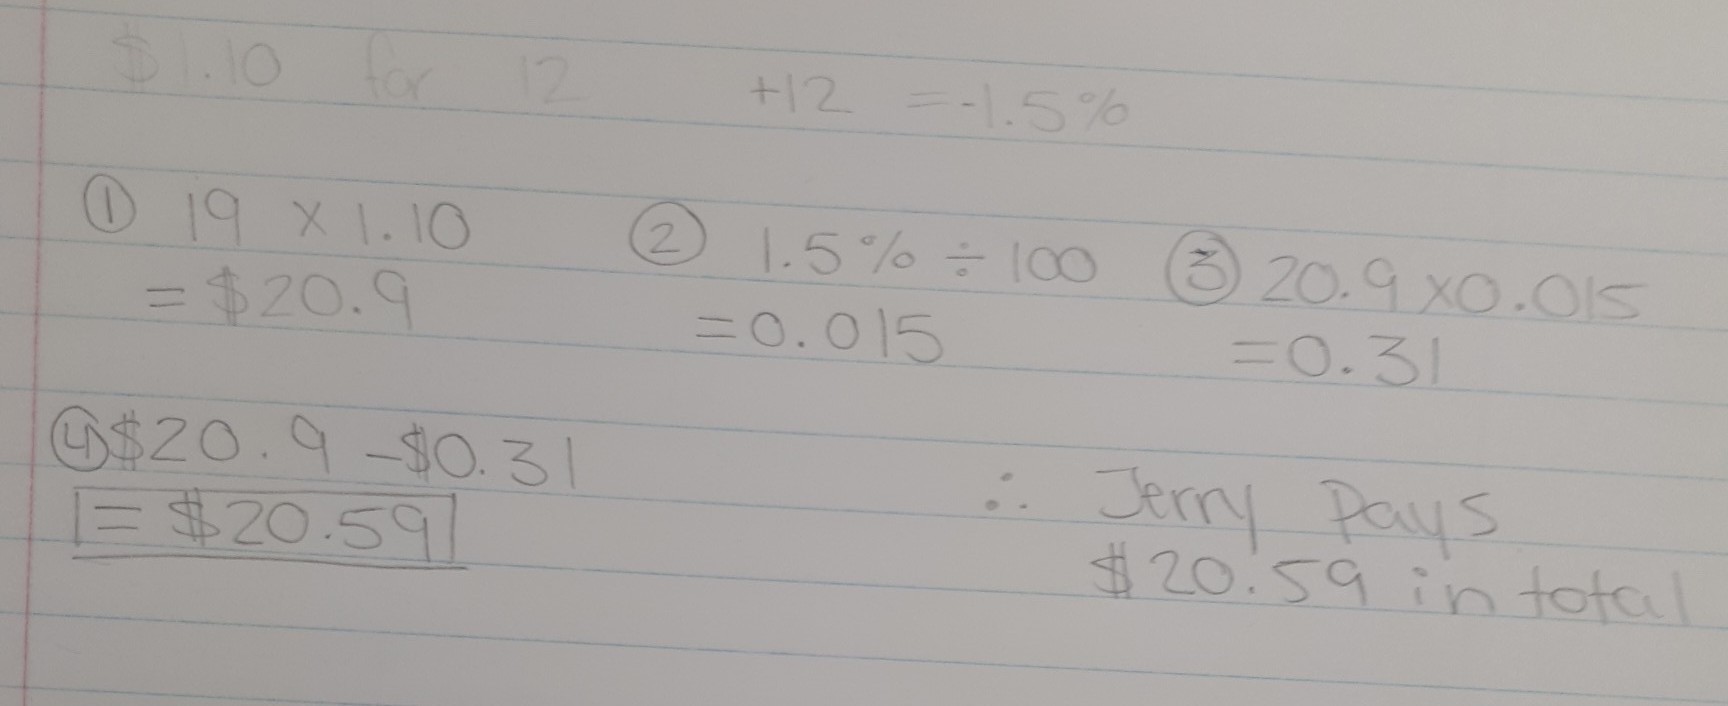 $1.10 for 12 +12 =-1.5%
① 19 x 1.10 ② 1.5% ÷ 100 ③ 20.9 x 0.015
= $20.9 =0.015 =0.31
④ $20.9 -$0.31
= $20.59
∴ Jerry Pays
$20.59 in total